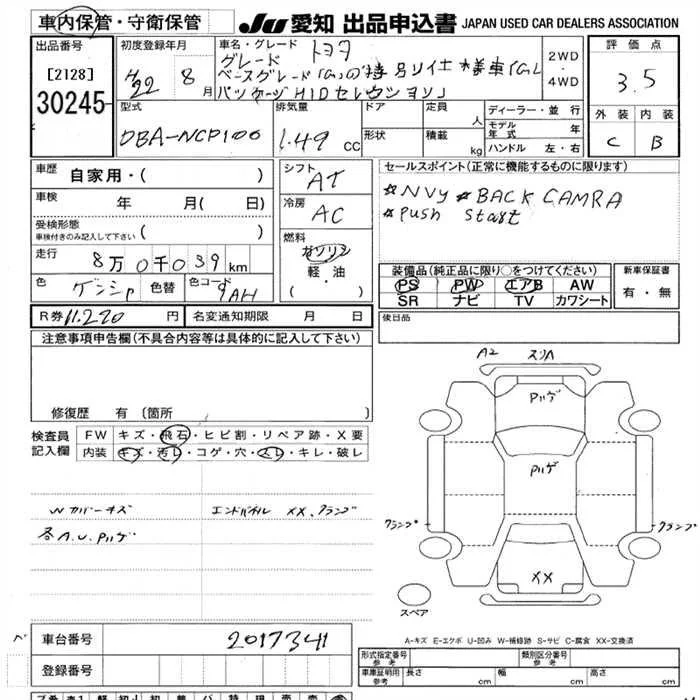 車内保管・守衛保管
JU 愛知 出品申込書 JAPAN USED CAR DEALERS ASSOCIATION
出品番号
[2128]
30245
初度登録年月
H22 8月
車名・グレード トヨタ
グレード
2WD
・
4WD
評価点
3.5
外装 内装
C B
型式
DBA-NCP100
排気量
1.49 cc
ドア
形状
定員 人
積載 kg
ディーラー・並行
モデル年式 年
ハンドル 左・右
車歴 自家用・( )
車検 年 月( 日)
受検形態
車検付きのみ記入して下さい ( )
走行 8万0千039km
色 色替 色コード 9AH
シフト
AT
冷房
AC
燃料
ガソリン
軽・油
・( )
セールスポイント(正常に機能するものに限ります)
☆NVy ☆BACK CAMRA
☆PUSH Start
装備品(純正品に限り○をつけてください)
PS PW エアB AW
SR ナビ TV カワシート
新車保証書
有・無
R券 11.220円 名変通知期限 月 日
後日品
注意事項申告欄(不具合内容等は具体的に記入して下さい)
修復歴 有 (箇所 )
検査員記入欄
FW キズ・飛石・ヒビ割・リペア跡・X要
内装 キズ・汚レ・コゲ・穴・スレ・キレ・破レ
Wカバーキズ
エンドパネル XX、クランプ
各A.U.Pハゲ
A2 スリハ
Pハゲ
Pハゲ
クランプ クランプ
XX
スペア
A-キズ E-エクボ U-凹み W-補修跡 S-サビ C-腐食 XX-交換済
車台番号 2017341
登録番号
形式指定番号 参考
類別区分番号 参考
車庫証明用 参考 長さ cm 幅 cm 高さ cm